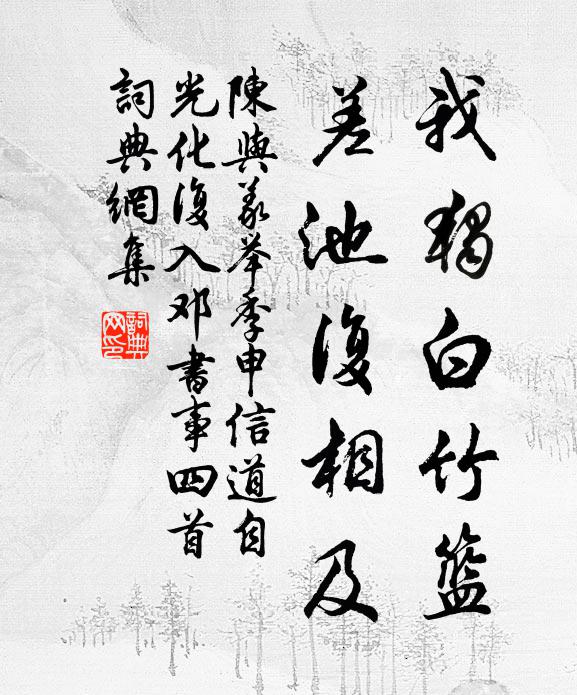 我獨白竹籃
差池復相及
陳與義举季申信道自
光化復入邓書事四首
詞典網集
詞典
网印